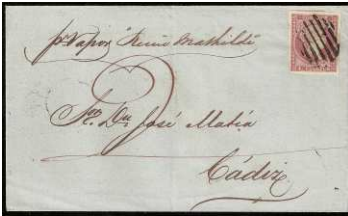 pr Vapor "Reine Mathilde"
2
Sr. Dn. José Matia
Cádiz